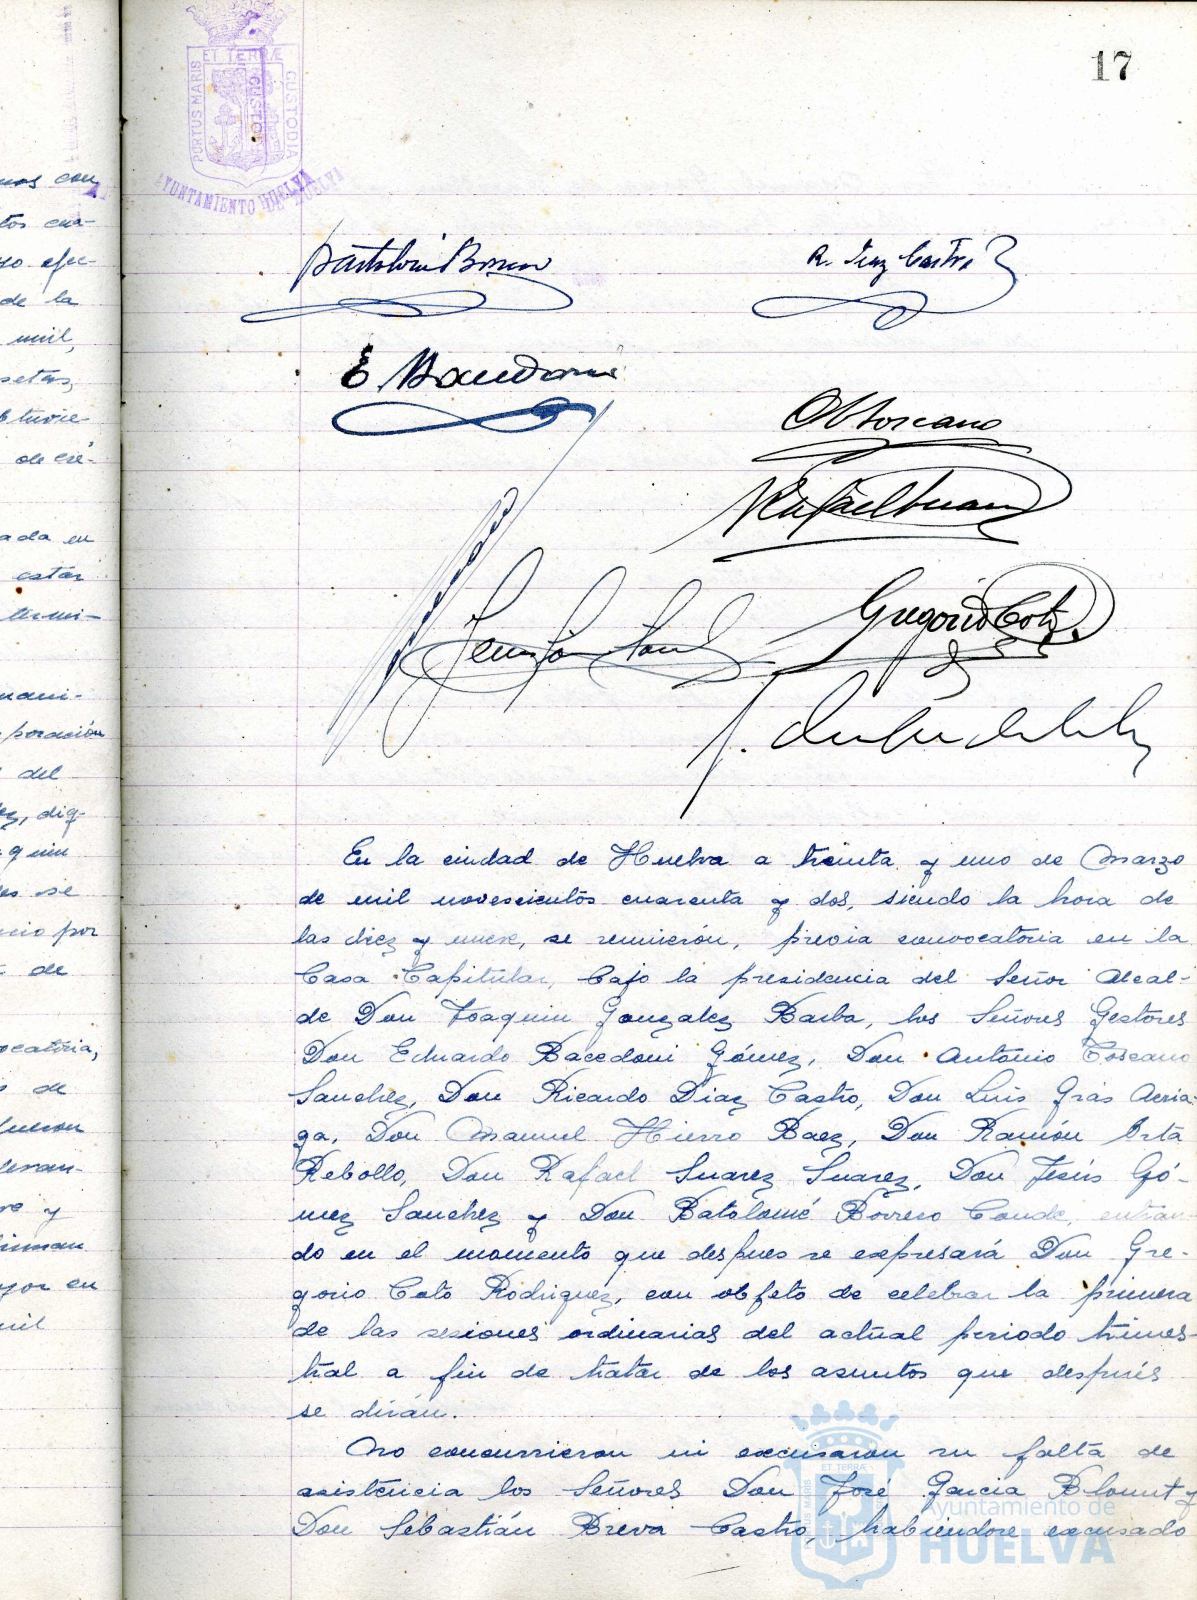 17
PORTUS MARIS ET TERRÆ CUSTODIA
AYUNTAMIENTO DE HUELVA
R. Diaz Castro
E. Bacedoni
A Toscano
Rafael Suarez
Gregorio Coto
En la ciudad de Huelva a treinta y uno de Marzo
de mil novescientos cuarenta y dos, siendo la hora de
las diez y nueve, se reunieron, previa convocatoria en la
Casa Capitular, bajo la presidencia del Señor Alcal-
de Don Joaquin Gonzalez Barba, los Señores Gestores
Don Eduardo Bacedoni Gómez, Don Antonio Toscano
Sanchez, Don Ricardo Diaz Castro, Don Luis Gras Acria-
ga, Don Manuel Hierro Baez, Don Ramón Orta
Rebollo, Don Rafael Suarez Suarez, Don Jesús Gó-
mez Sanchez y Don Batolomé Borrero Conde, entran-
do en el momento que despues se expresará Don Gre-
gorio Coto Rodriguez, con objeto de celebrar la primera
de las sesiones ordinarias del actual periodo trimes-
tral a fin de tratar de los asuntos que después
se dirán.
No concurrieron ni excusaron su falta de
asistencia los Señores Don José Garcia Blount y
Don Sebastián Breva Castro, habiendose excusado
Ayuntamiento de
HUELVA
uos con
tos cua-
yo efec-
de la
mil,
setas,
btuvie-
de cré-
ada en
estar
termi-
mani-
poración
del
ez, dig-
quin
les se
cio por
de
ocatoria,
de
fueron
levan-
re y
firman
yor en
mil